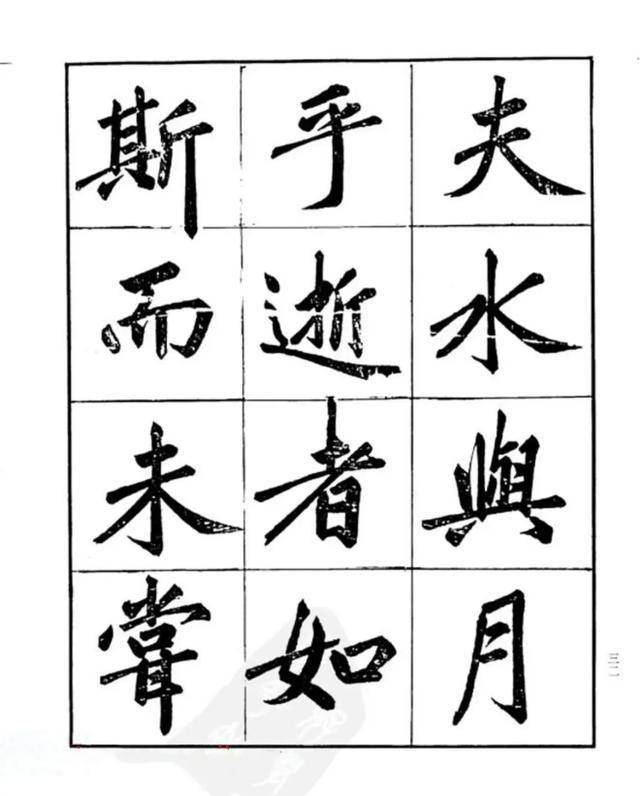 夫水與月
乎逝者如
斯而未嘗